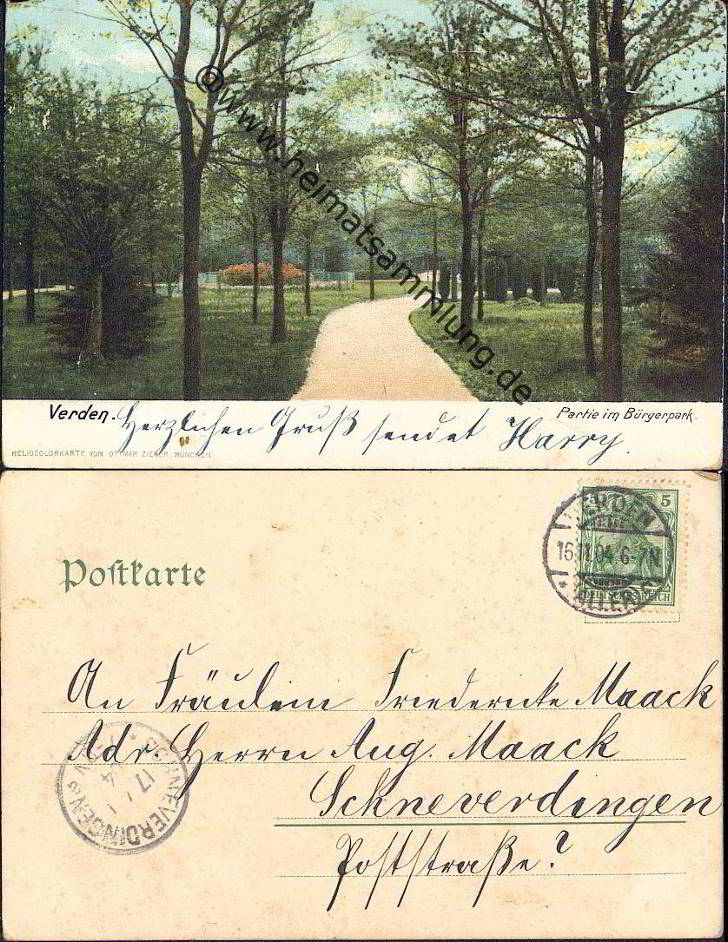 ©www.heimatsammlung.de
Verden. Herzlichen Gruß sendet Harry.
Partie im Bürgerpark.
HELIOCOLORKARTE VON OTTMAR ZIEHER, MÜNCHEN.
Postkarte
5
DEUTSCHES REICH
VERDEN
16.11.04. 6-7N
* (ALLER) *
An Fräulein Friedericke Maack
Adr. Herrn Aug. Maack
Schneverdingen
Poststraße?
SCHNEVERDINGEN
17